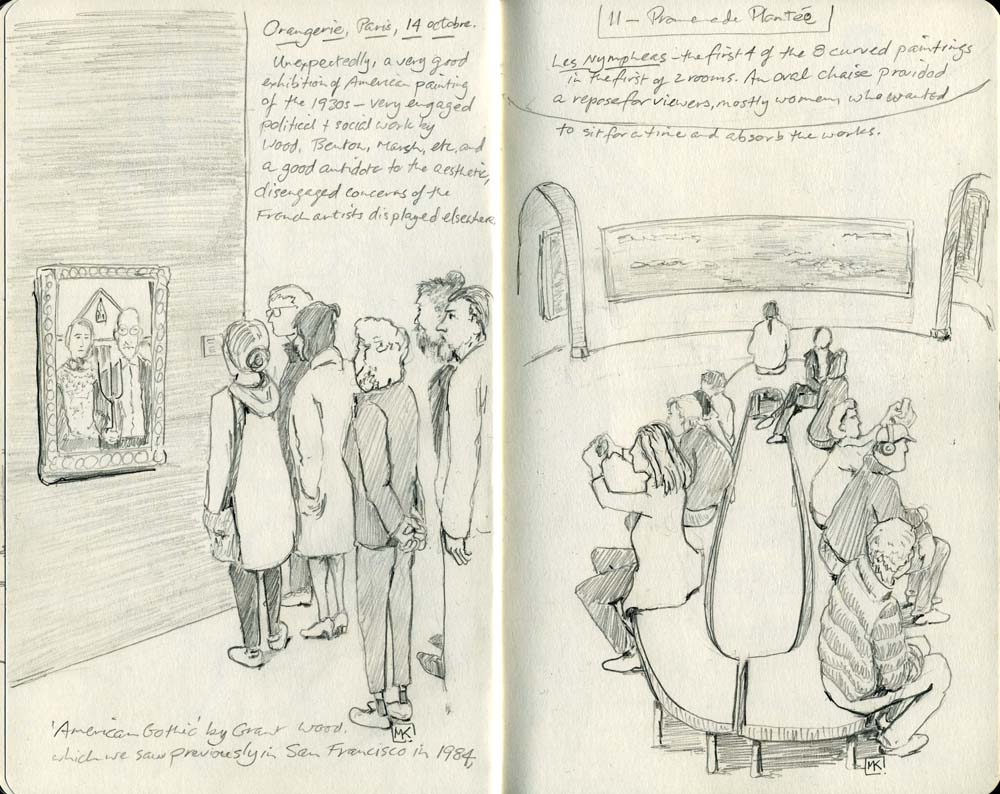 Orangerie, Paris, 14 octobre.
Unexpectedly, a very good
exhibition of American painting
of the 1930s – very engaged
political + social work by
Wood, Benton, Marsh, etc, and
a good antidote to the aesthetic,
disengaged concerns of the
French artists displayed elsewhere.
MK
'American Gothic' by Grant Wood.
which we saw previously in San Francisco in 1984,
11 – Promenade Plantée
Les Nympheas – the first 4 of the 8 curved paintings
in the first of 2 rooms. An oval chaise provided
a repose for viewers, mostly women, who wanted
to sit for a time and absorb the works.
MK